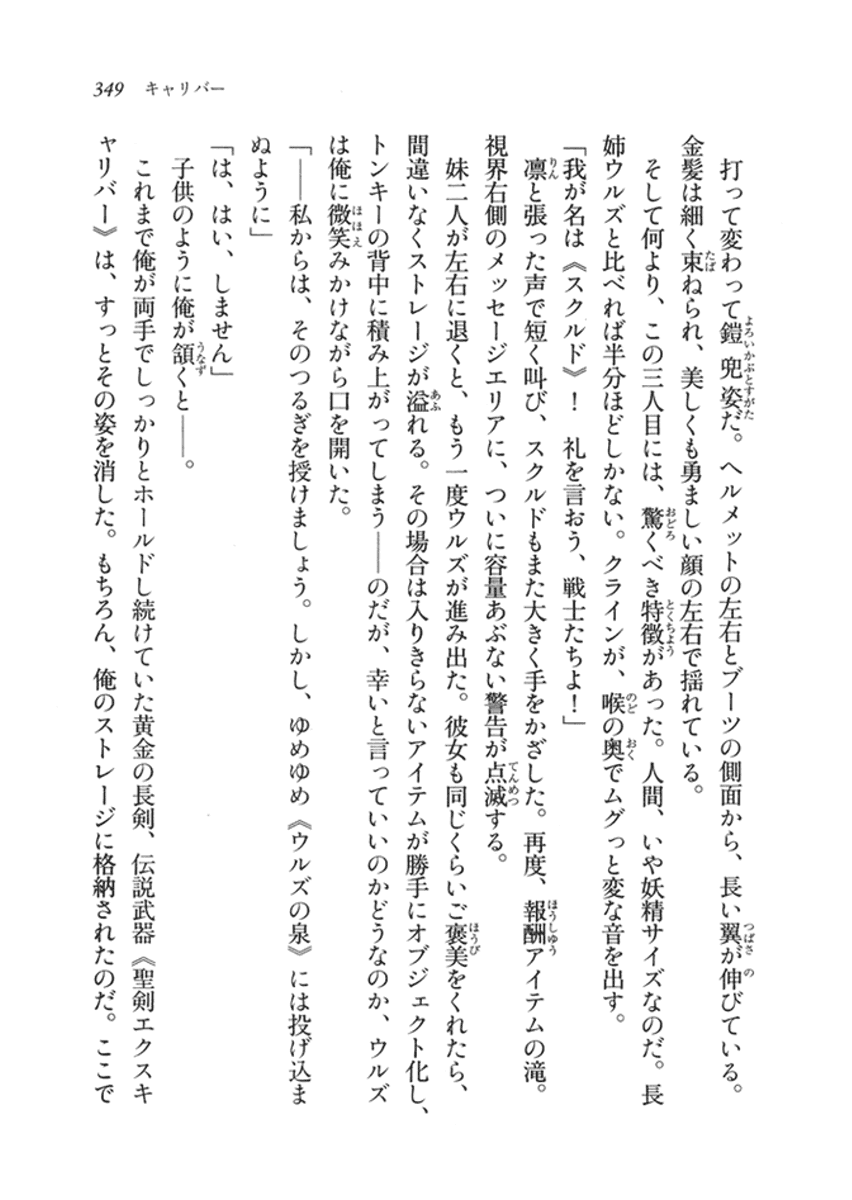 349 キャリバー
打って変わって鎧兜姿だ。ヘルメットの左右とブーツの側面から、長い翼が伸びている。
金髪は細く束ねられ、美しくも勇ましい顔の左右で揺れている。
そして何より、この三人目には、驚くべき特徴があった。人間、いや妖精サイズなのだ。長
姉ウルズと比べれば半分ほどしかない。クラインが、喉の奥でムグっと変な音を出す。
「我が名は《スクルド》！　礼を言おう、戦士たちよ！」
凛と張った声で短く叫び、スクルドもまた大きく手をかざした。再度、報酬アイテムの滝。
視界右側のメッセージエリアに、ついに容量あぶない警告が点滅する。
妹二人が左右に退くと、もう一度ウルズが進み出た。彼女も同じくらいご褒美をくれたら、
間違いなくストレージが溢れる。その場合は入りきらないアイテムが勝手にオブジェクト化し、
トンキーの背中に積み上がってしまう――のだが、幸いと言っていいのかどうなのか、ウルズ
は俺に微笑みかけながら口を開いた。
「――私からは、そのつるぎを授けましょう。しかし、ゆめゆめ《ウルズの泉》には投げ込ま
ぬように」
「は、はい、しません」
子供のように俺が頷くと――。
これまで俺が両手でしっかりとホールドし続けていた黄金の長剣、伝説武器《聖剣エクスキ
ャリバー》は、すっとその姿を消した。もちろん、俺のストレージに格納されたのだ。ここで